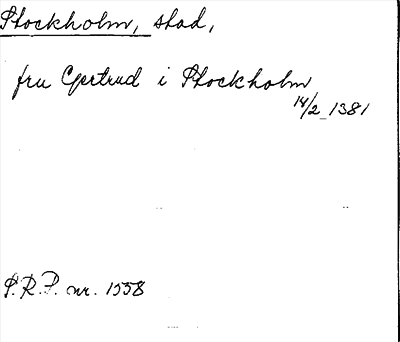 Stockholm, stad,
fru Gertrud i Stockholm
14/2 1381
S.R.P. nr. 1558